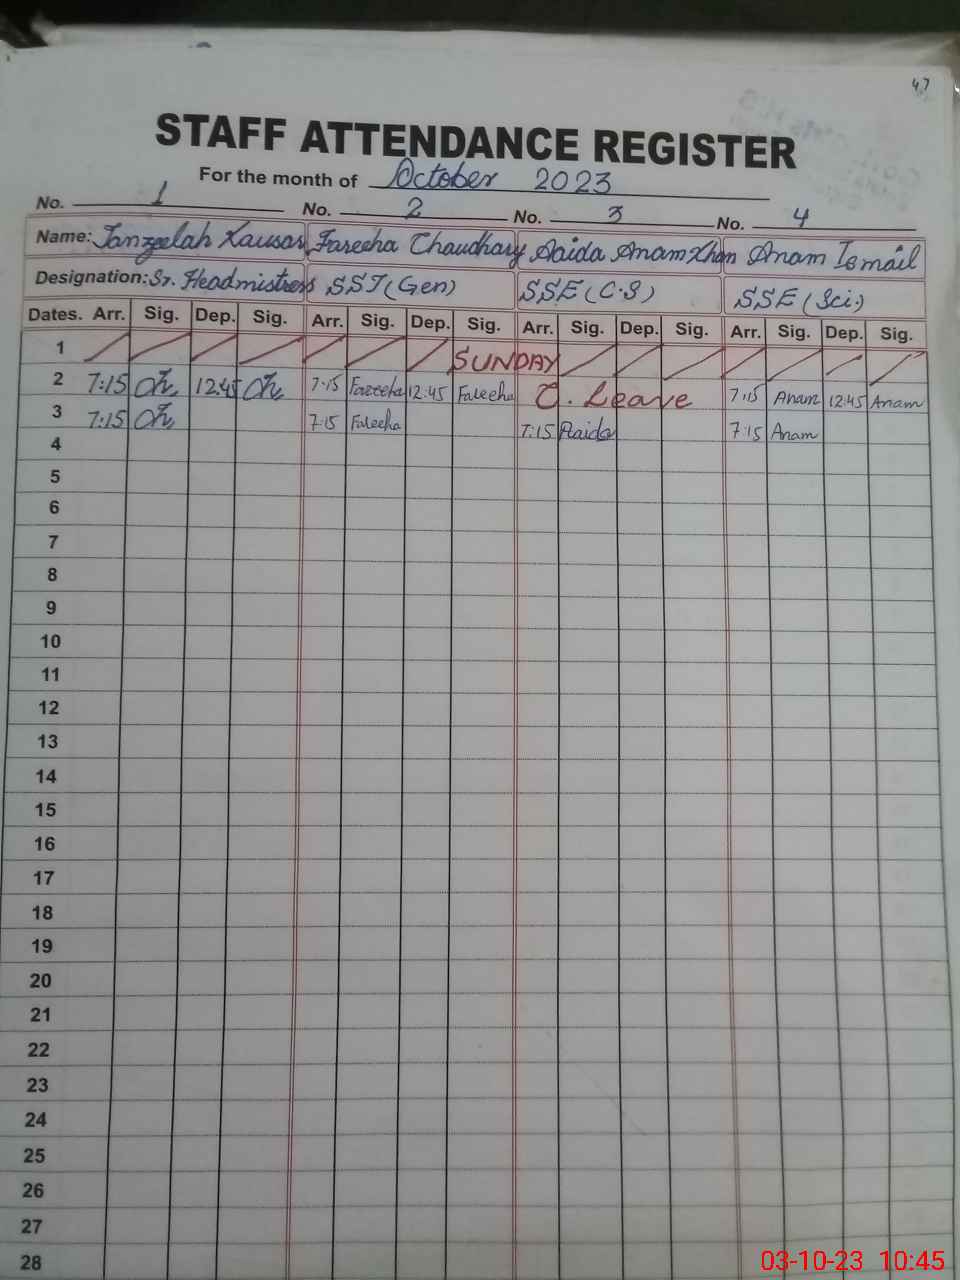 47
STAFF ATTENDANCE REGISTER
For the month of October 2023
No. 1 No. 2 No. 3 No. 4
Name: Tanzeelah Kausar Fareeha Chaudhary Aaida Anam Khan Anam Ismail
Designation: Sr. Headmistress SST (Gen) SSE (C.S) SSE (Sci.)
Dates. Arr. Sig. Dep. Sig. Arr. Sig. Dep. Sig. Arr. Sig. Dep. Sig. Arr. Sig. Dep. Sig.
1 SUNDAY
2 7:15 12:45 7:15 Fareeha 12:45 Fareeha C. Leave 7:15 Anam 12:45 Anam
3 7:15 7:15 Fareeha 7:15 Aaida 7:15 Anam
4
5
6
7
8
9
10
11
12
13
14
15
16
17
18
19
20
21
22
23
24
25
26
27
28
03-10-23 10:45